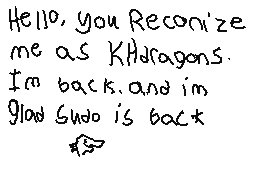 Hello, you Reconize
me as KHdragons.
Im back. and im
glad Sudo is back